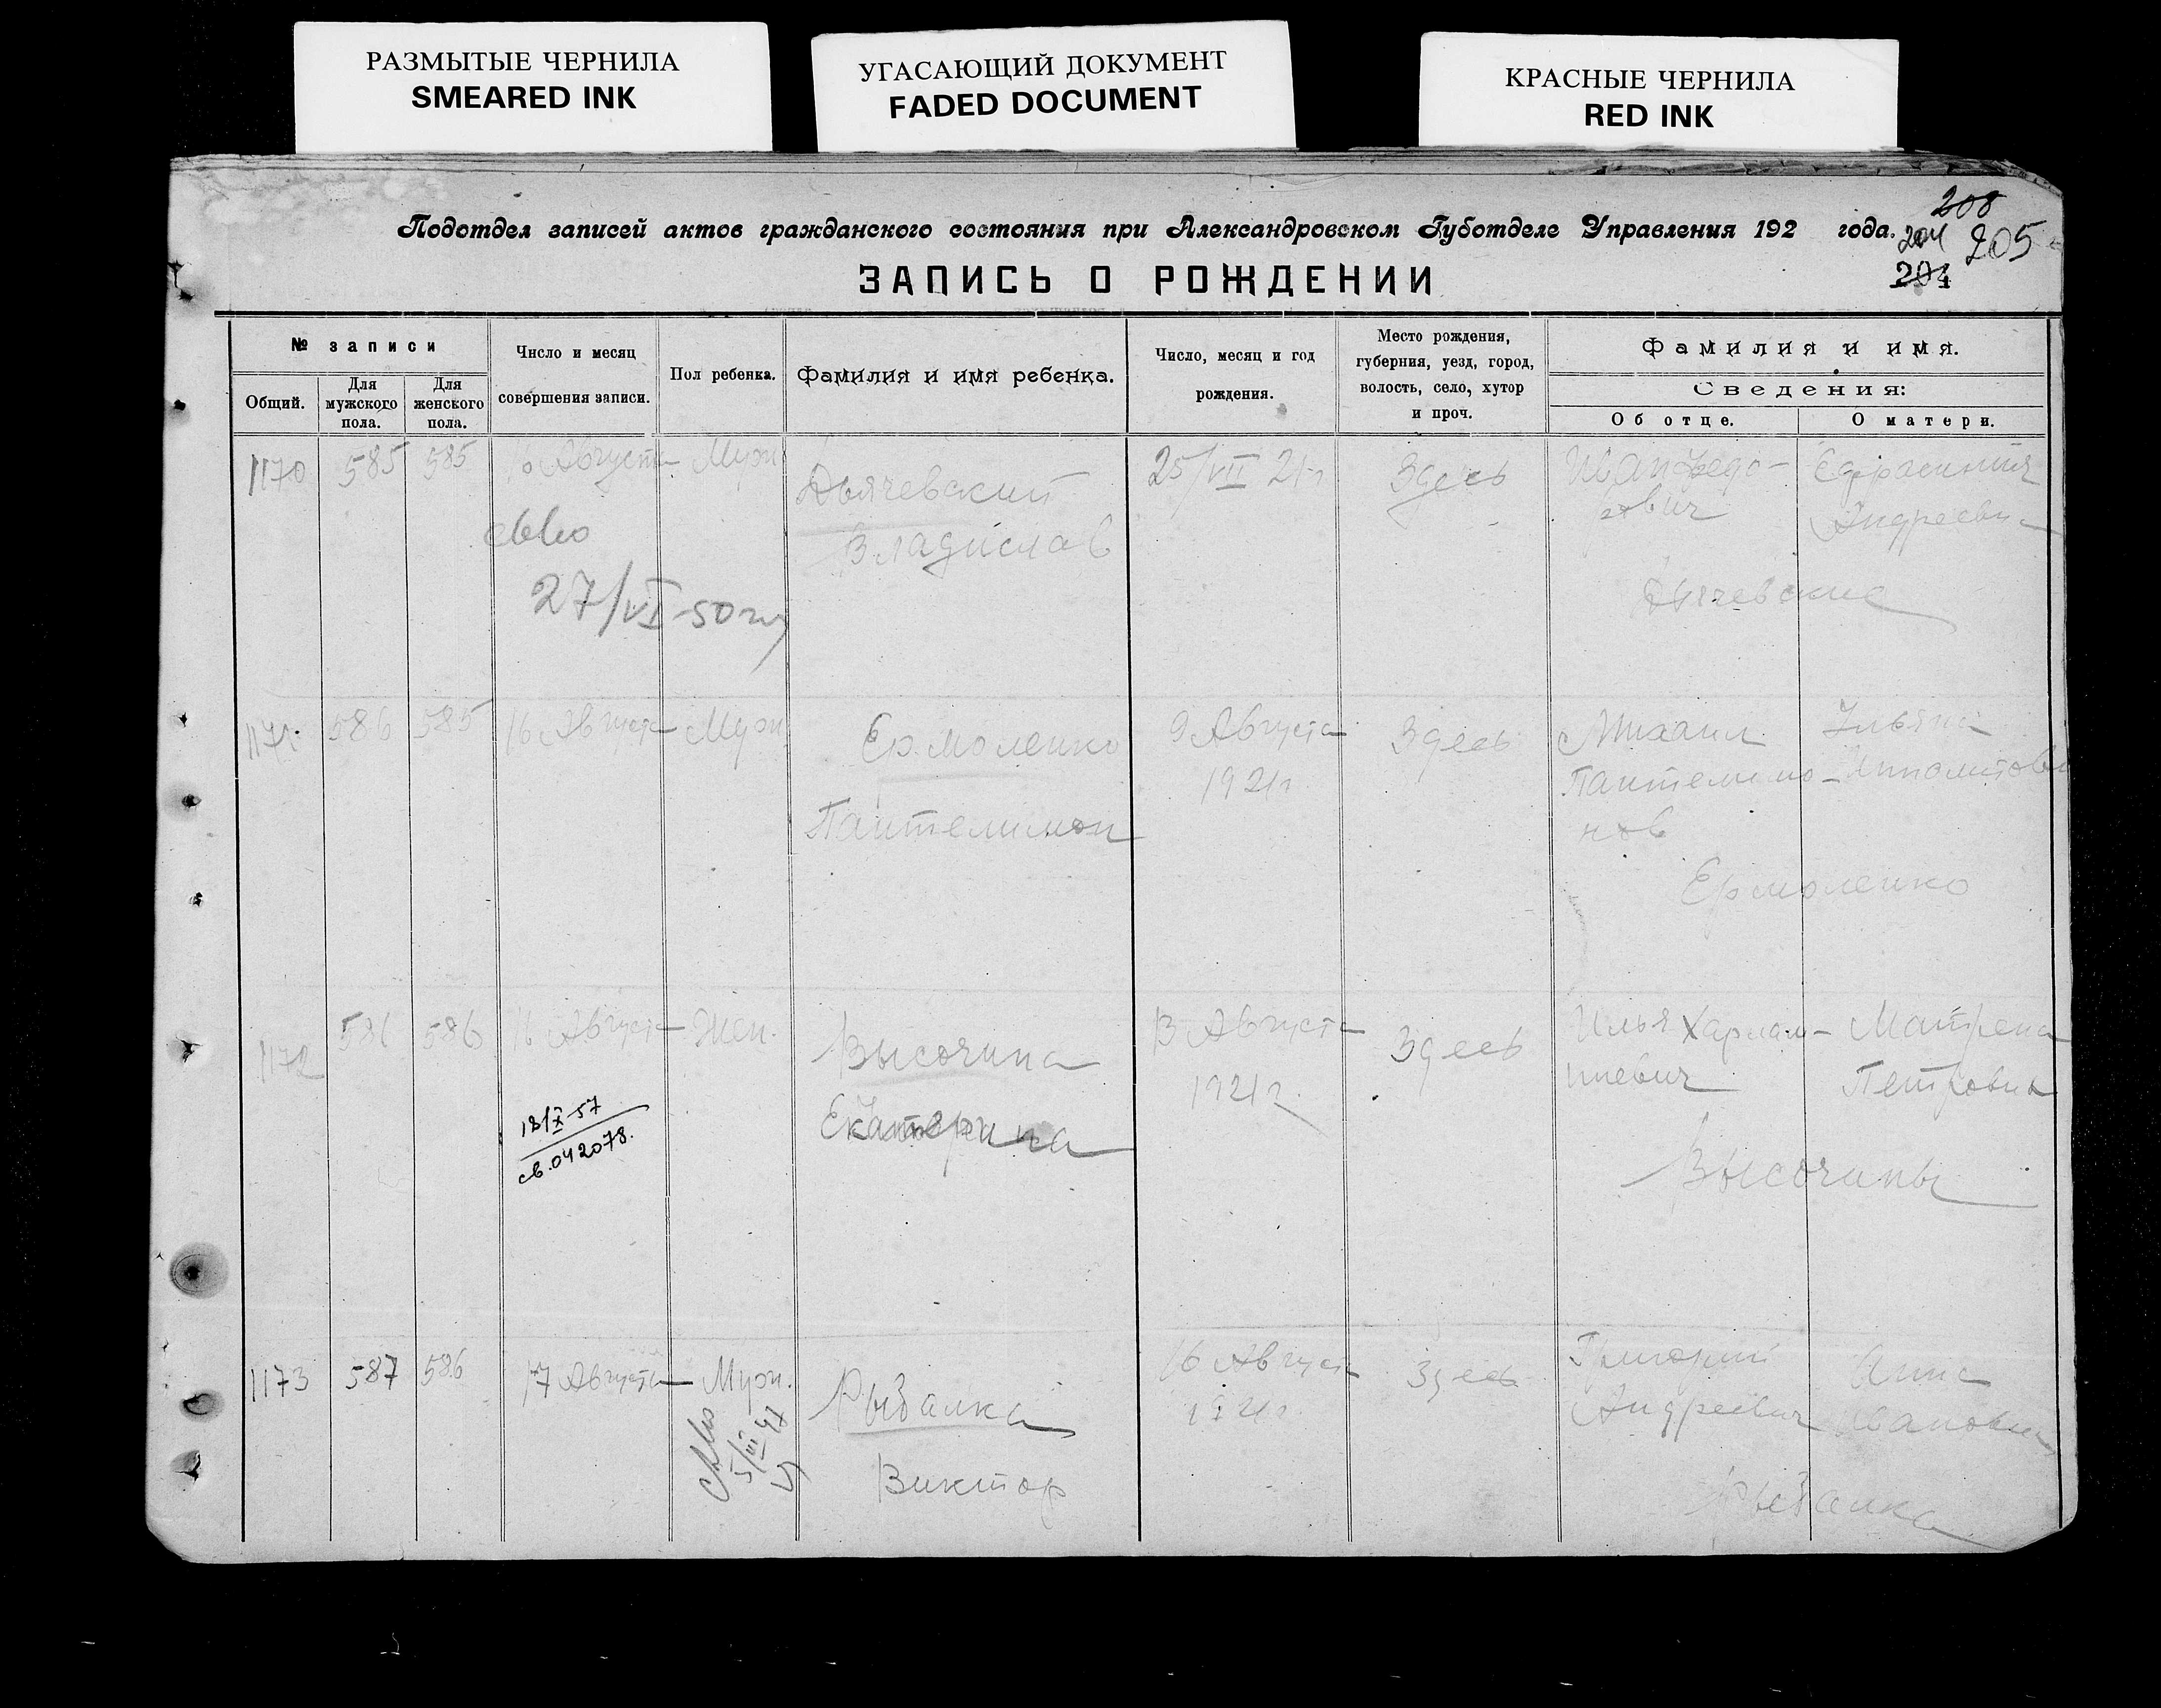 РАЗМЫТЫЕ ЧЕРНИЛА
SMEARED INK
УГАСАЮЩИЙ ДОКУМЕНТ
FADED DOCUMENT
КРАСНЫЕ ЧЕРНИЛА
RED INK
208
204
205
204
Подотдел записей актов гражданского состояния при Александровском Губотделе Управления 192 года.
ЗАПИСЬ О РОЖДЕНИИ
№ записи
Общий.
Для мужского пола.
Для женского пола.
Число и месяц совершения записи.
Пол ребенка.
Фамилия и имя ребенка.
Число, месяц и год рождения.
Место рождения, губерния, уезд, город, волость, село, хутор и проч.
Фамилия и имя.
Сведения:
Об отце.
О матери.
1170 585 585 16 Августа Муж
Дьячевский
Владислав
25/VII 21г
Здесь
Иван Федо-
рович
Ефросиния
Андреевна
Дьячевские
св-во
27/VI-50г
1171 586 585 16 Августа Муж.
Ермоленко
Пантелимон
9 Августа
1921г
Здесь
Михаил
Пантелимо-
нов
Ульяна
Ермоленко
1172 586 586 16 Августа Жен.
Высочина
Екатерина
13 Августа
1921г.
Здесь
Илья Харлам-
пиевич
Матрена
Петровна
Высочины
18/X-57
св.042078.
1173 587 586 17 Августа Муж.
Рыбалка
Виктор
16 Августа
1921г.
Здесь
Григорий
Андреевич
Анна
Ивановна
Рыбалка
св-во
5/III 47